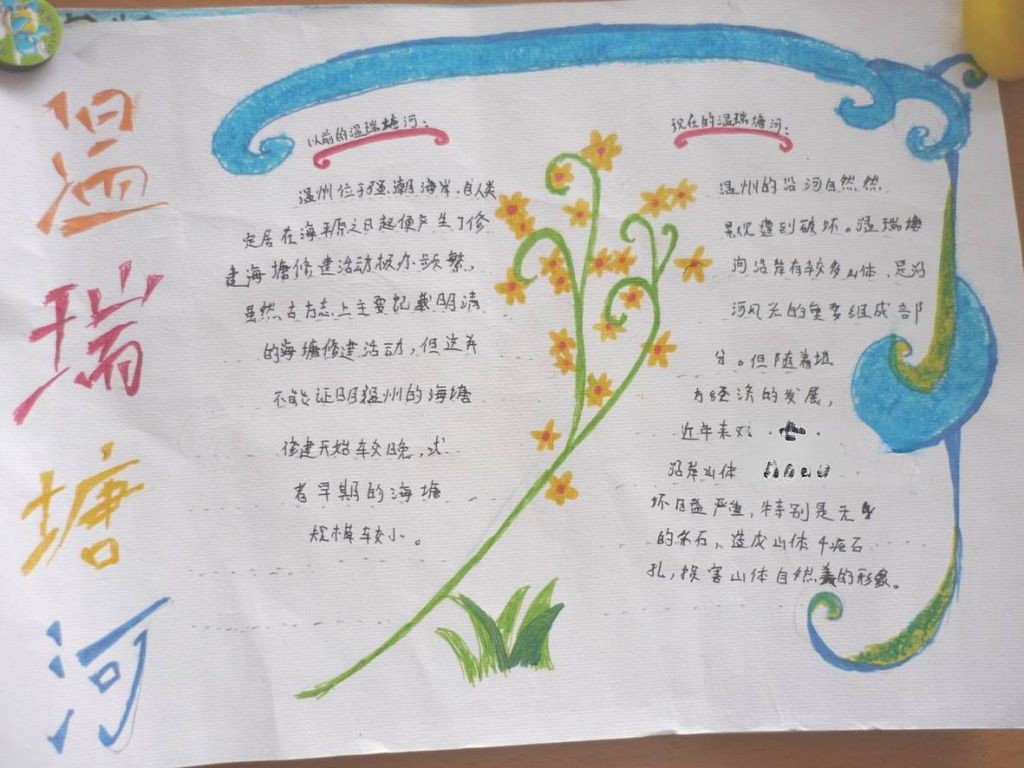 温
瑞
塘
河
以前的温瑞塘河：
温州位于强潮海岸，自人类
定居在海平原之日起便产生了修
建海塘修建活动极为频繁，
虽然古方志上主要记载明清
的海塘修建活动，但这并
不能证明温州的海塘
修建开始较晚，或
者早期的海塘
规模较小。
现在的温瑞塘河：
温州的沿河自然然
景况遭到破坏。温瑞塘
河沿岸有较多山体，是沿
河风光的重要组成部
分。但随着地
方经济的发展，
近年来对
沿岸山体
坏日益严重，特别是无
的采石、造成山体千疮石
孔，损害山体自然美的形象。